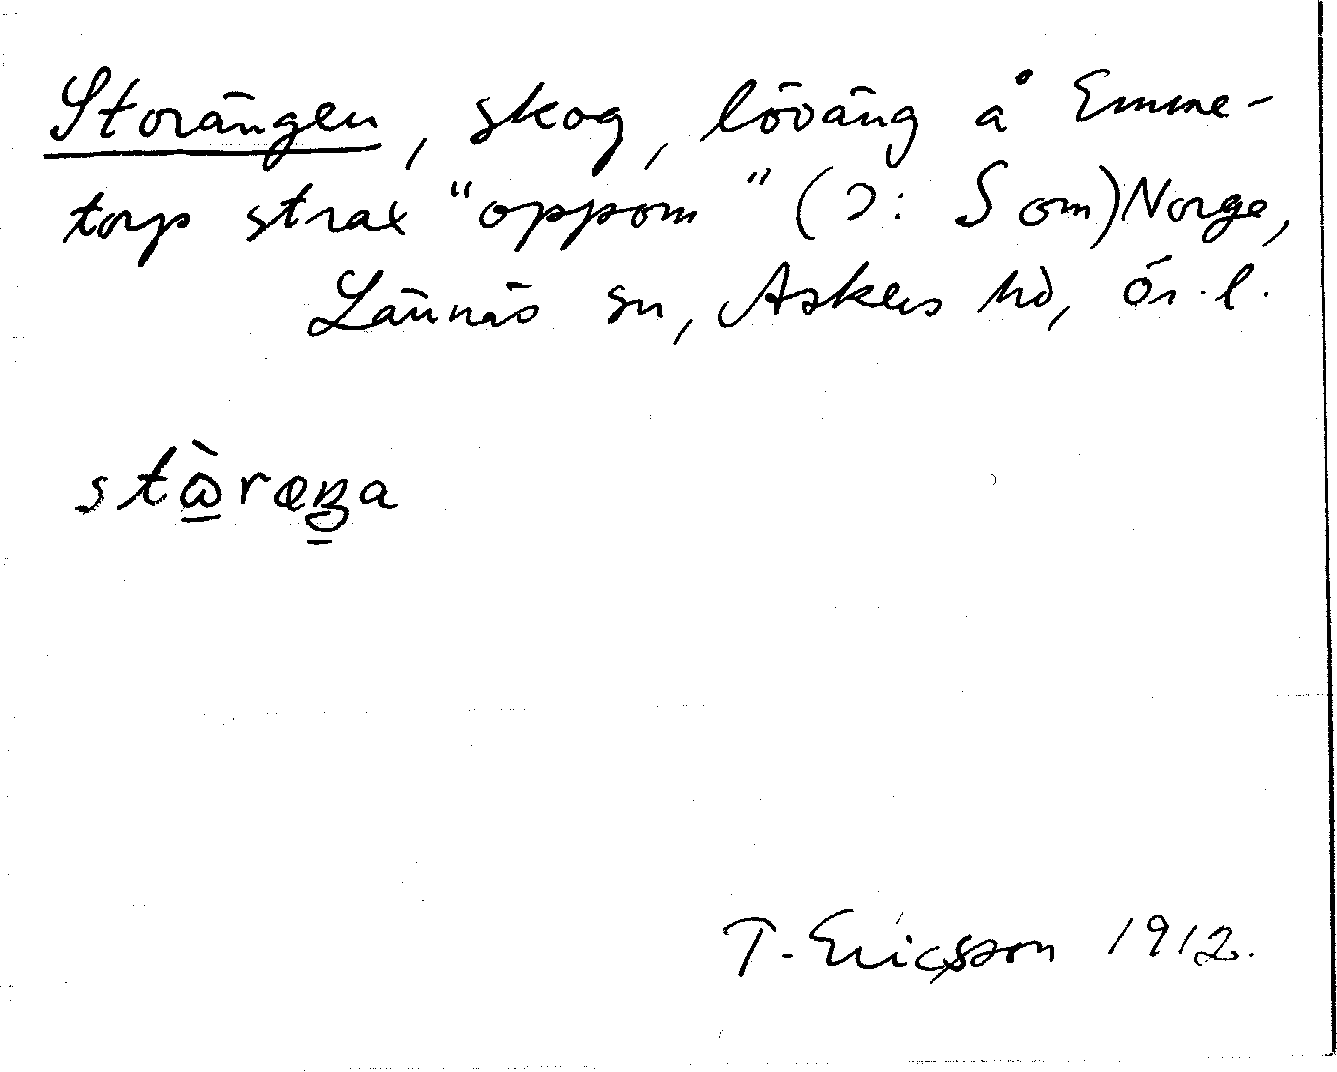 Storängen, skog, löväng å Emme-
torp strax "oppom" (ɔ: S om) Norge,
Lännäs sn, Askers hd, Ör. l.
T. Ericsson 1912.